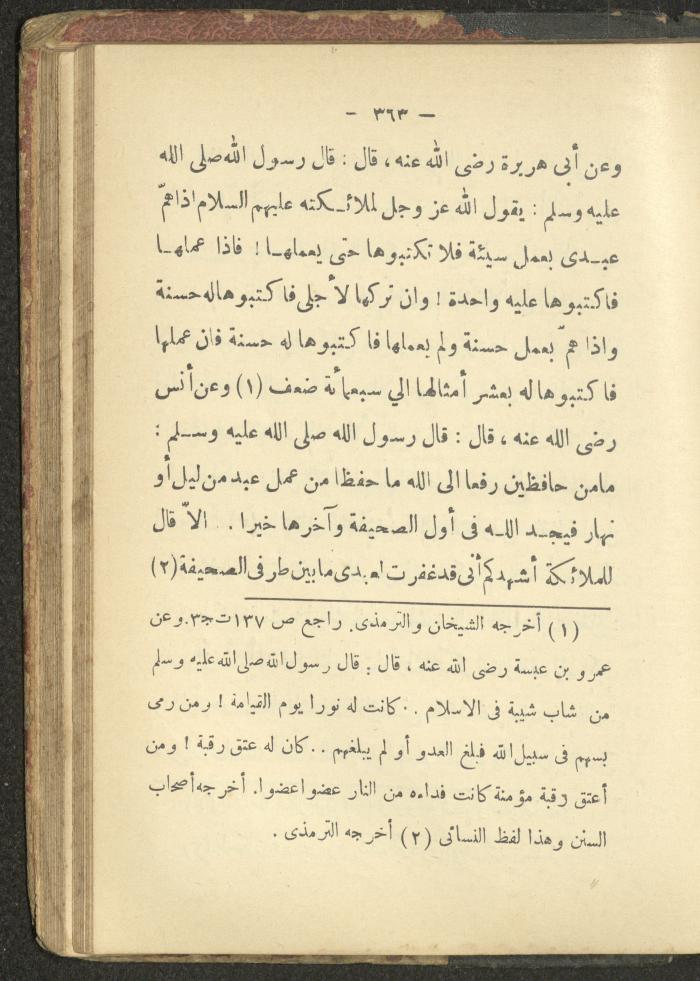 — ٣٦٣ —
وعن أبى هريرة رضى الله عنه ، قال : قال رسول الله صلى الله
عليه وسلم : يقول الله عز وجل لملائكته عليهم السلام اذا همّ
عبدى بعمل سيئة فلا تكتبوها حتى يعملها ! فاذا عملها
فاكتبوها عليه واحدة ! وان تركها لأجلى فاكتبوها له حسنة
واذا همّ بعمل حسنة ولم يعملها فاكتبوها له حسنة فان عملها
فاكتبوها له بعشر أمثالها الي سبعمائة ضعف (١) وعن أنس
رضى الله عنه ، قال : قال رسول الله صلى الله عليه وسلم :
مامن حافظين رفعا الى الله ما حفظا من عمل عبد من ليل أو
نهار فيجد الله فى أول الصحيفة وآخرها خيرا . . الاّ قال
للملائكة أشهدكم أنى قد غفرت لعبدى مابين طرفى الصحيفة (٢)
(١) أخرجه الشيخان والترمذى . راجع ص ١٣٧ ت ج٣ . وعن
عمرو بن عبسة رضى الله عنه ، قال : قال رسول الله صلى الله عليه وسلم
من شاب شيبة فى الاسلام . . كانت له نورا يوم القيامة ! ومن رمى
بسهم فى سبيل الله فبلغ العدو أو لم يبلغهم . . كان له عتق رقبة ! ومن
أعتق رقبة مؤمنة كانت فداءه من النار عضوا عضوا . أخرجه أصحاب
السنن وهذا لفظ النسائى (٢) أخرجه الترمذى .